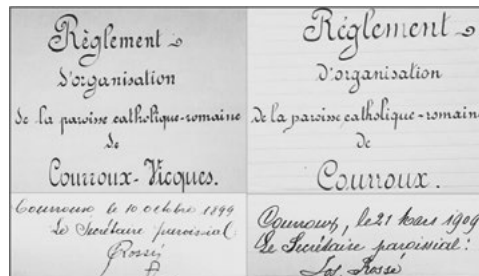 Règlement
d'organisation
de la paroisse catholique-romaine
de
Courroux-Vicques.
Courroux le 10 octobre 1899
Le Secrétaire paroissial
Rossé
Réglement
d'organisation
de la paroisse catholique-romaine
de
Courroux.
Courroux, le 21 Mars 1909
Le Secrétaire paroissial:
Jos. Rossé